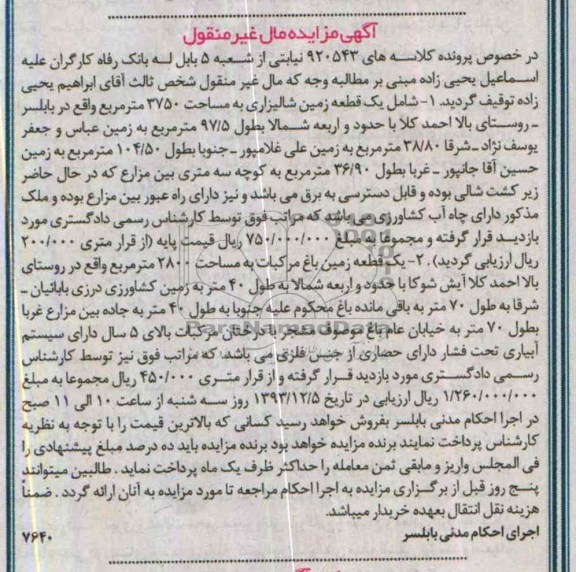 آگهی مزایده مال غیر منقول
در خصوص پرونده کلاسه های ۹۲۰۵۴۳ نیابتی از شعبه ۵ بابل له بانک رفاه کارگران علیه
اسماعیل یحیی زاده مبنی بر مطالبه وجه که مال غیر منقول شخص ثالث آقای ابراهیم یحیی
زاده توقیف گردید. ۱- شامل یک قطعه زمین شالیزاری به مساحت ۳۷۵۰ مترمربع واقع در بابلسر
ـ روستای بالا احمد کلا با حدود و اربعه شمالا بطول ۹۷/۵ مترمربع به زمین عباس و جعفر
یوسف نژاد ـ شرقا ۳۸/۸۰ مترمربع به زمین علی غلامپور ـ جنوبا بطول ۱۰۴/۵۰ مترمربع به زمین
حسین آقا جانپور ـ غربا بطول ۳۶/۹۰ مترمربع به کوچه سه متری بین مزارع که در حال حاضر
زیر کشت شالی بوده و قابل دسترسی به برق می باشد و نیز دارای راه عبور بین مزارع بوده و ملک
مذکور دارای چاه آب کشاورزی می باشد که مراتب فوق توسط کارشناس رسمی دادگستری مورد
بازدید قرار گرفته و مجموعا به مبلغ ۷۵۰/۰۰۰/۰۰۰ ریال قیمت پایه (از قرار متری ۲۰۰/۰۰۰
ریال ارزیابی گردید). ۲- یک قطعه زمین باغ مرکبات به مساحت ۲۸۰۰ مترمربع واقع در روستای
بالا احمد کلا آیش شوکا با حدود و اربعه شمالا به طول ۴۰ متر به زمین کشاورزی درزی بابائیان ـ
شرقا به طول ۷۰ متر به باقی مانده باغ محکوم علیه جنوبا به طول ۴۰ متر به جاده بین مزارع غربا
بطول ۷۰ متر به خیابان عام باغ موصوف مشجر با درختان مرکبات بالای ۵ سال دارای سیستم
آبیاری تحت فشار دارای حصاری از جنس فلزی می باشد که مراتب فوق نیز توسط کارشناس
رسمی دادگستری مورد بازدید قرار گرفته و از قرار متری ۴۵۰/۰۰۰ ریال مجموعا به مبلغ
۱/۲۶۰/۰۰۰/۰۰۰ ریال ارزیابی در تاریخ ۱۳۹۳/۱۲/۵ روز سه شنبه از ساعت ۱۰ الی ۱۱ صبح
در اجرا احکام مدنی بابلسر بفروش خواهد رسید کسانی که بالاترین قیمت را با توجه به نظریه
کارشناس پرداخت نمایند برنده مزایده خواهد بود برنده مزایده باید ده درصد مبلغ پیشنهادی را
فی المجلس واریز و مابقی ثمن معامله را حداکثر ظرف یک ماه پرداخت نماید . طالبین میتوانند
پنج روز قبل از برگزاری مزایده به اجرا احکام مراجعه تا مورد مزایده به آنان ارائه گردد . ضمناً
هزینه نقل انتقال بعهده خریدار میباشد.
اجرای احکام مدنی بابلسر ۷۶۴۰